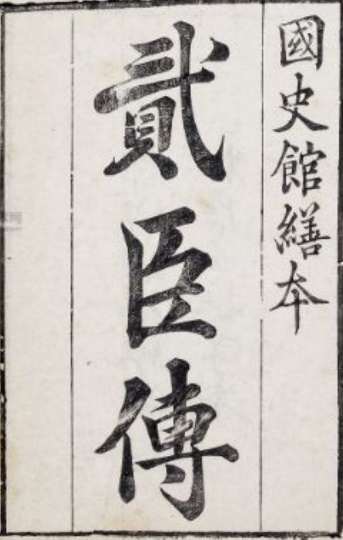 國史館繕本
貳臣傳